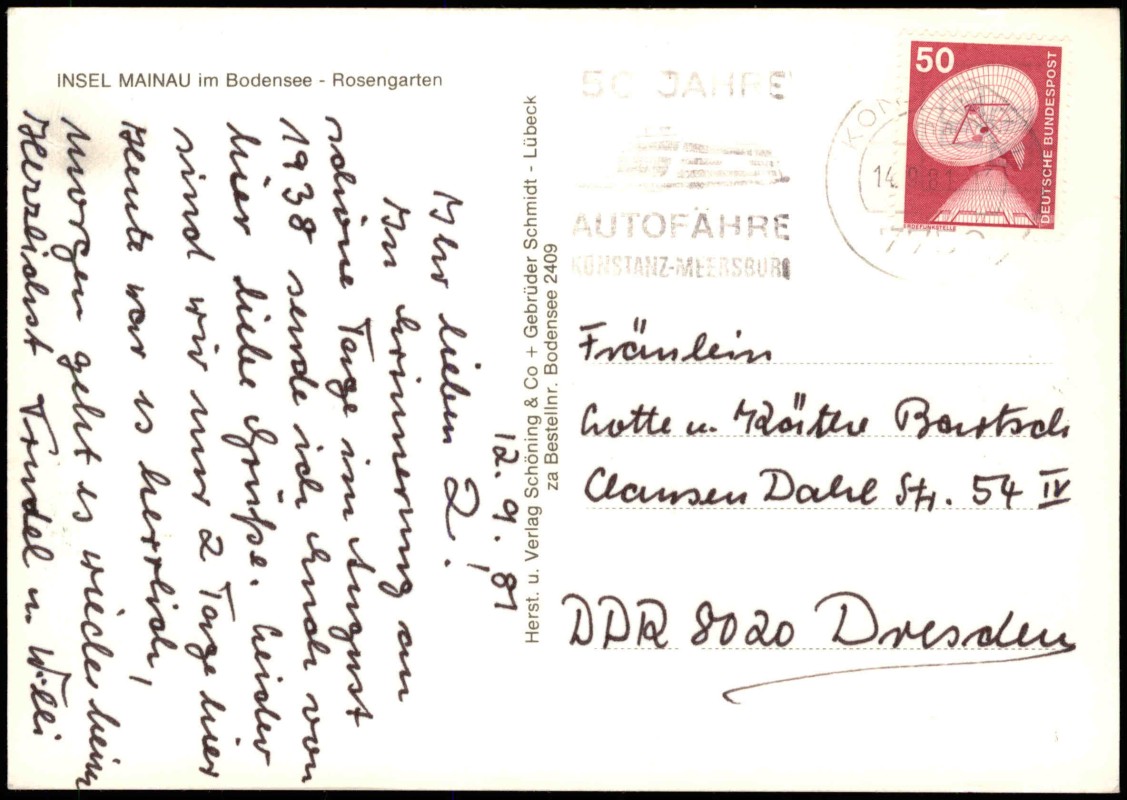 INSEL MAINAU im Bodensee - Rosengarten
12.9.81
Ihr lieben 2!
In Erinnerung an
schöne Tage im August
1938 sende ich Euch von
hier liebe Grüße. Leider
sind wir nur 2 Tage hier
Heute war es herrlich,
morgen geht es wieder heim
Herzlichst Trudel u. Willi
Herst. u. Verlag Schöning & Co + Gebrüder Schmidt - Lübeck
za Bestellnr. Bodensee 2409
50 JAHRE
AUTOFÄHRE
KONSTANZ-MEERSBURG
14.9.81
50
DEUTSCHE BUNDESPOST
ERDEFUNKSTELLE
Fräulein
Lotte u. Käthe Bartsch
Clausen Dahl Str. 54 IV
DDR 8020 Dresden